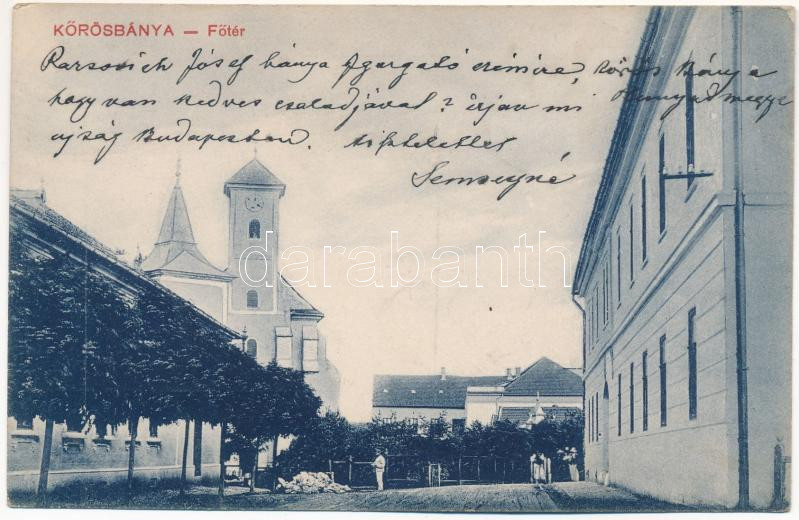 KŐRÖSBÁNYA — Főtér
Razsovich József bánya Igazgató czimére, Kőrös bánya
hogy van kedves családjával? irjan mi Hunyadmegye
ujság Budapesten. tiszteletlel
Semseyné
darabanth